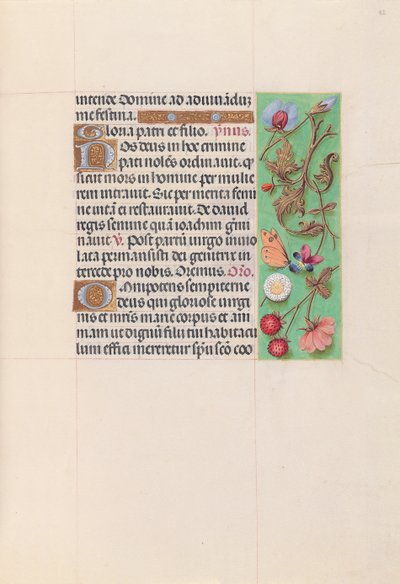 intende Domine ad adiuuãduz
me festina.
Gloria patri et filio. Ymus.
Nos deus in hoc crimine
pati noles ordinauit. q
sicut mors in hominem per mulie
rem intrauit. Sic per merita femi
ne uitã ei restaurauit. De dauid
regis semine quã ioachim
nauit V. Post partũ uirgo inuio
lata permansisti dei genitrix in
tercede pro nobis. Oremus. Oro.
Omnipotens sempiterne
deus qui gloriose uirgi
nis et mris marie corpus et ani
mam ut dignũ filii tui habitacu
lum effici mereretur spũ scõ coo